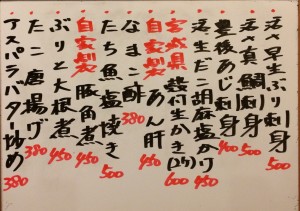 活〆早生ぶり刺身 500
活〆真鯛刺身 500
豊後あじ刺身 400
活生だこ胡麻塩かけ 450
宮城県殻付かき(2ケ) 600
自家製あん肝 450
なまこ酢 380
たち魚塩焼き 500
自家製豚角煮 450
ぶりと大根煮 450
たこ唐揚げ 380
アスパラバター炒め 380